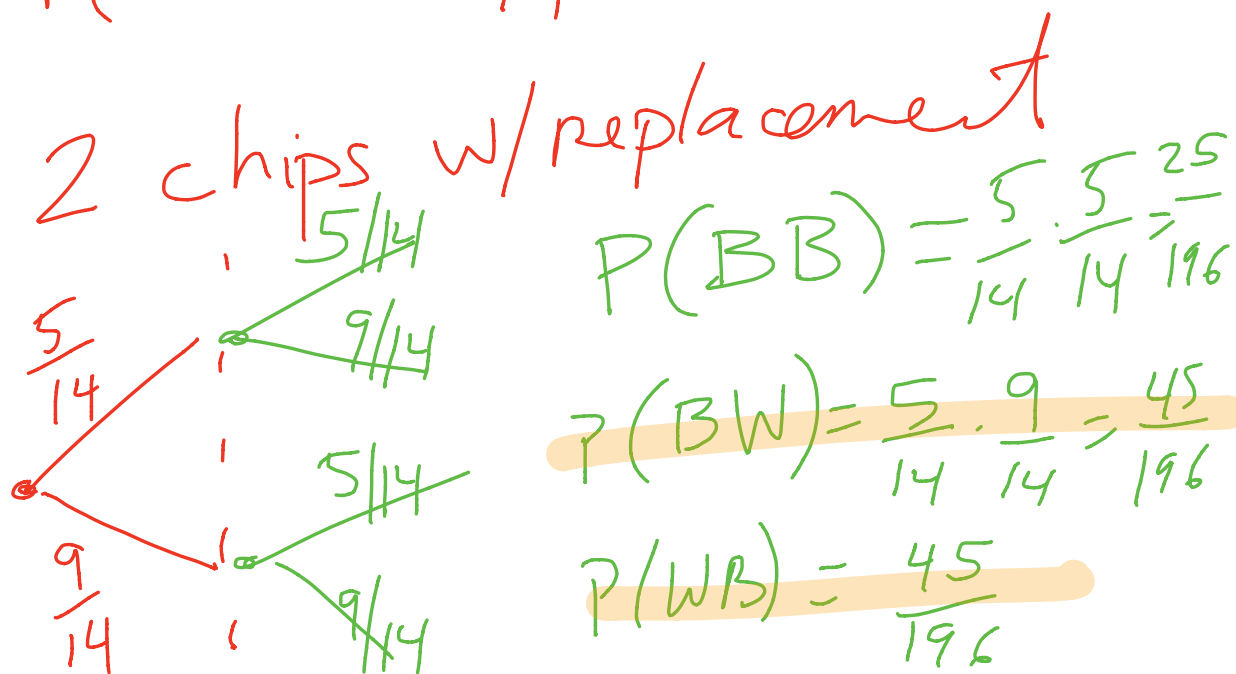 2 chips w/replacement
5/14
9/14
5/14
9/14
5/14
9/14
P(BB) = 5/14 · 5/14 = 25/196
P(BW) = 5/14 · 9/14 = 45/196
P(WB) = 45/196